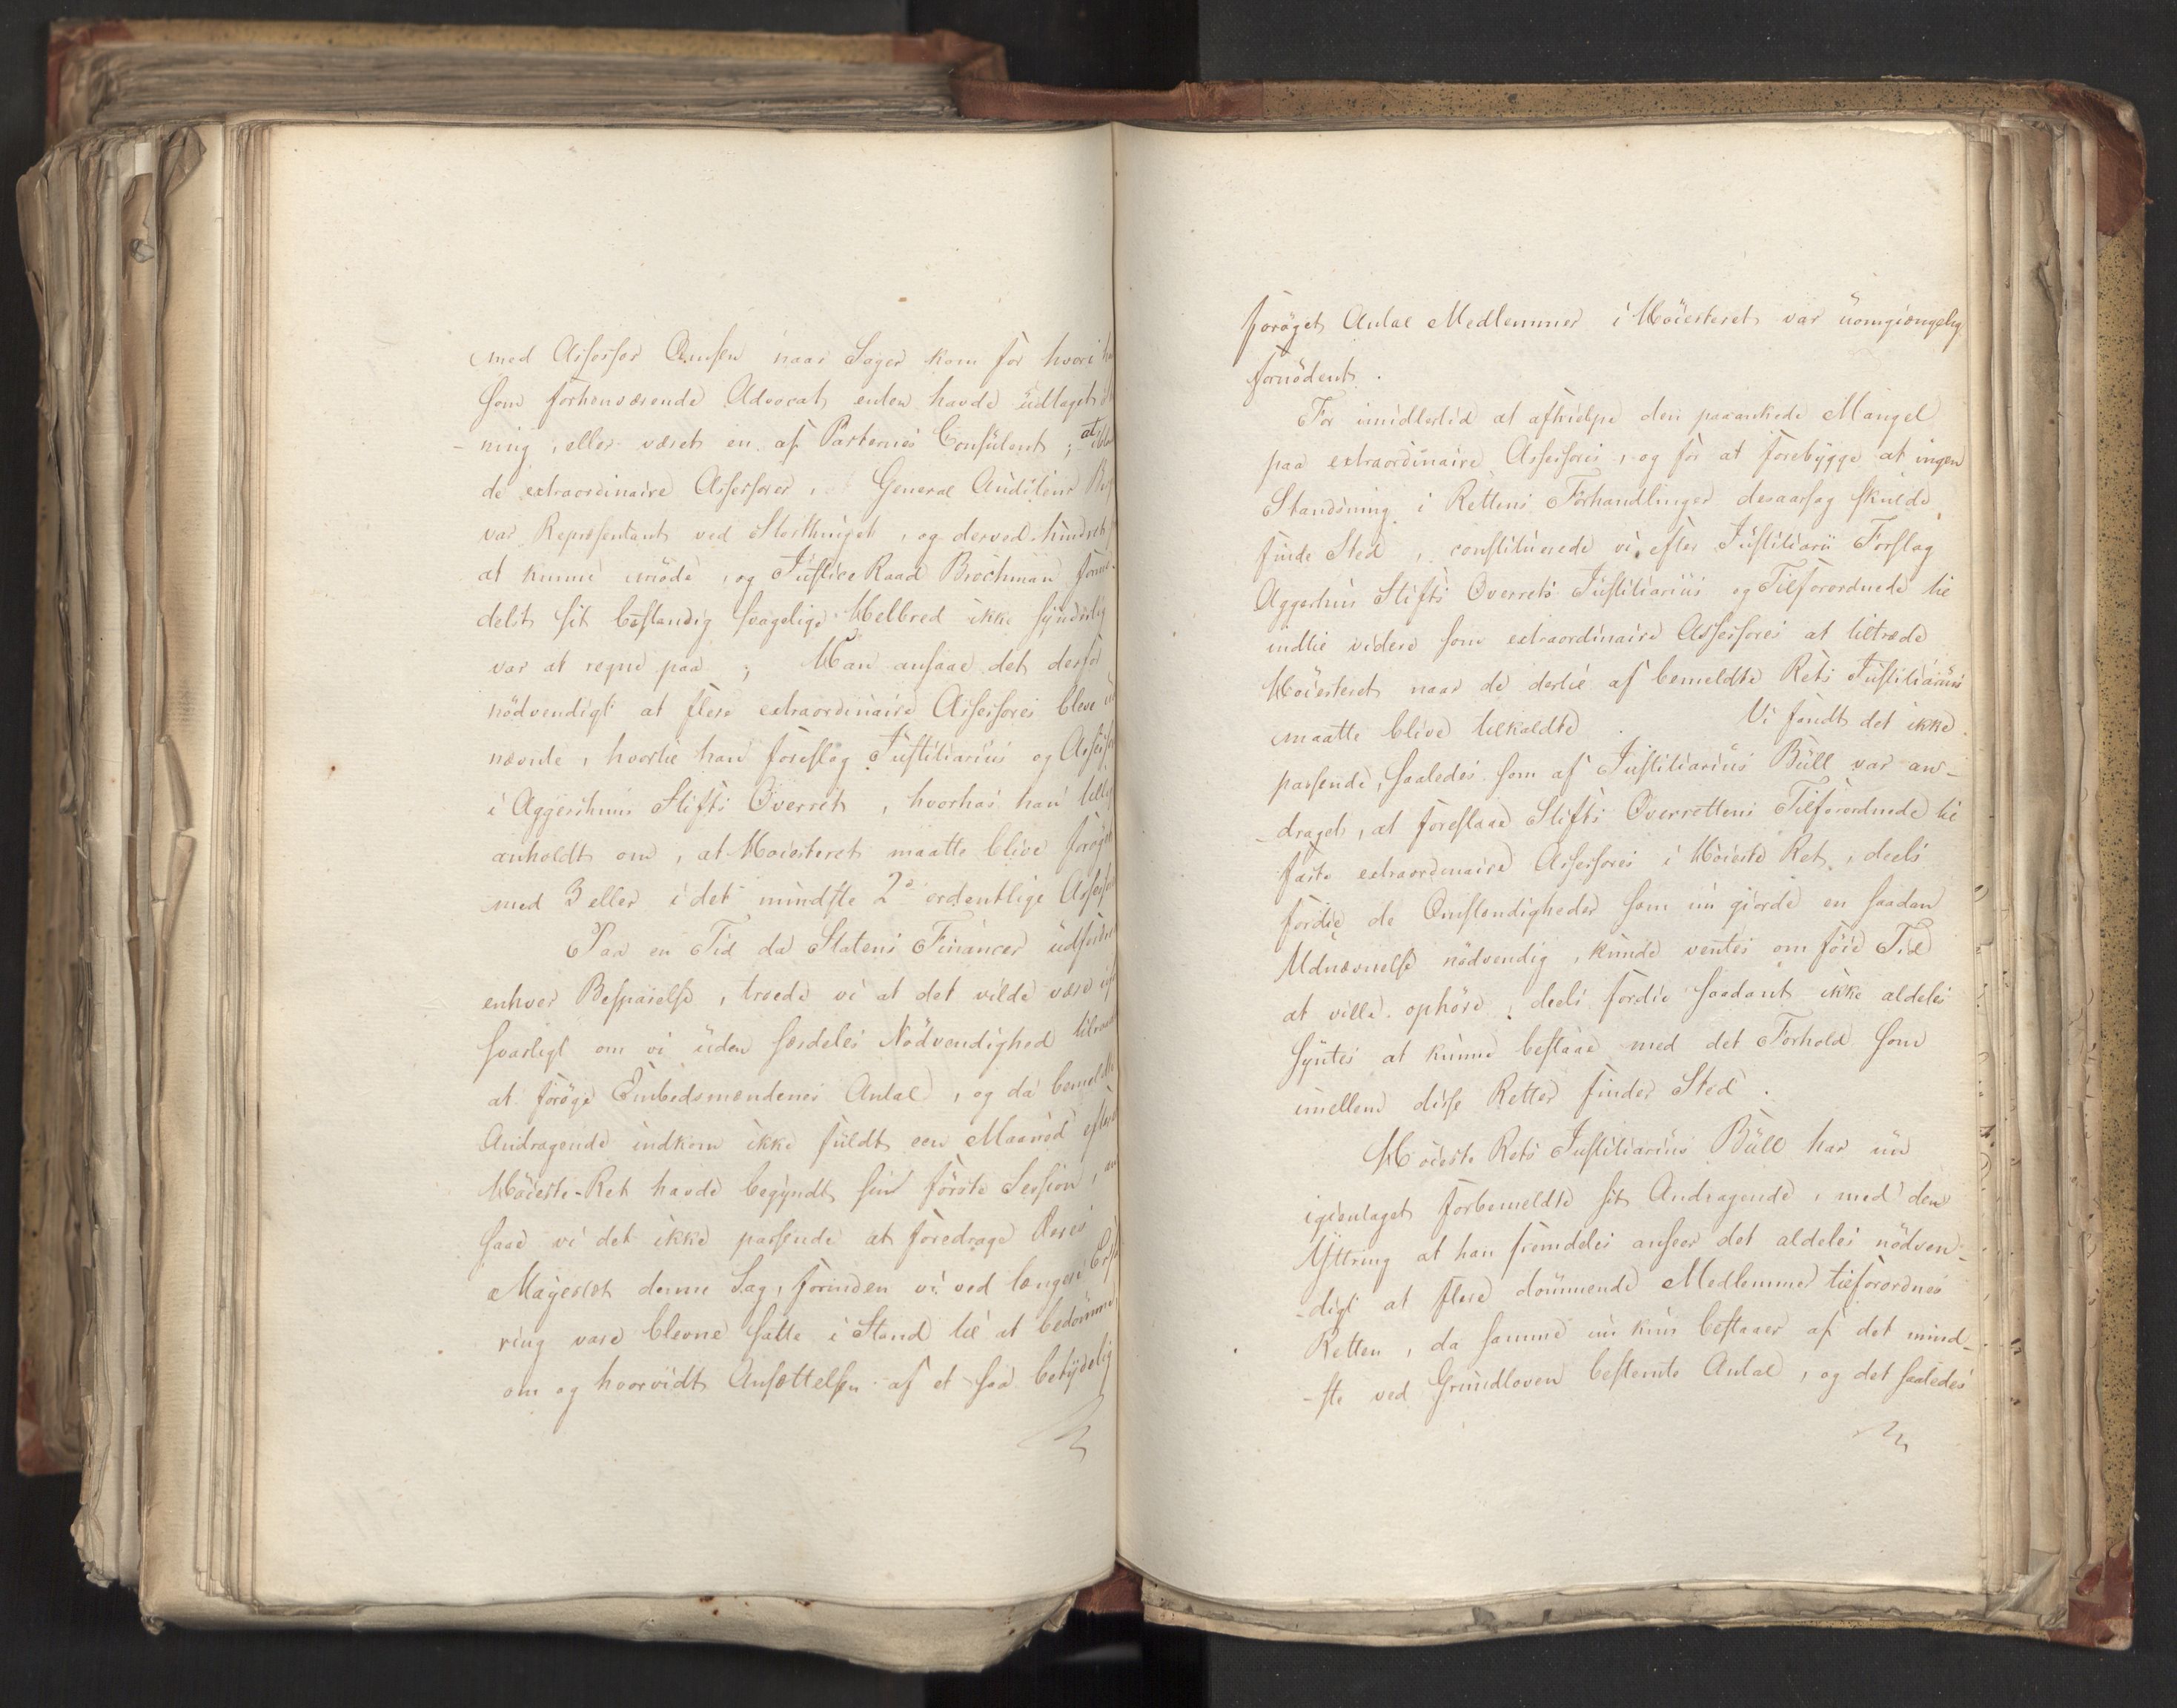 med Assessor Omsen naar Sager kom for hvori
som forhenværende Advocat enten havde udtaget
ning, eller været en af Parternes Consulent; at
de extraordinaire Assessorer, General Auditeur
var Repræsentant ved Storthinget, og derved hindret
at kunne møde, og Justice Raad Brochman forme-
delst sit bestandig svagelige Helbred ikke synderlig
var at regne paa; Han ansaae det derfor
nødvendigt at flere extraordinaire Assessores bleve
nævnte, hvortil han foreslog Justitiarius og
i Aggershuus Stifts Overret, hvorhos han
anholdt om, at Høiesteret maatte blive forøget
med 3 eller i det mindste 2de ordentlige
Paa en Tid da Statens Financer udfordre
enhver Besparelse, troede vi at det vilde være
svarligt om vi uden særdeles Nødvendighed
at forøge Embedsmændenes Antal, og da bemeldte
Andragende indkom ikke fuldt een Maaned efter
Høieste-Ret havde begyndt sin første Session, an
saae vi det ikke passende at foredrage Deres
Majestæt denne Sag, forinden vi ved længere
ring vare blevne satte i Stand til at bedømme
om og hvorvidt Ansættelsen af et saa betydelig
forøget Antal Medlemmer i Høiesteret var uomgiængelig
fornødent.
For imidlertid at afhielpe den paaankede Mangel
paa extraordinaire Assessores, og for at forebygge at ingen
Standsning i Rettens Forhandlinger desaarsag skulde
finde Sted, constituerede vi efter Justitiarii Forslag
Aggerhus Stifts Overrets Justitiarius og Tilforordnede til
indtil videre som extraordinaire Assessores at tiltræde
Høiesteret naar de dertil af bemeldte Rets Justitiarius
maatte blive tilkaldte. Vi fandt det ikke
passende, saaledes som af Justitiarius Bull var an-
-draget, at foreslaae Stifts Overrettens Tilforordnede til
faste extraordinaire Assessores i Høieste Ret, deels
fordie de Omstendigheder som nu giorde en saadan
Udnævnelse nødvendig, kunde ventes om føie Tid
at ville ophøre, deels fordie saadant ikke aldeles
syntes at kunne bestaae med det Forhold som
imellem disse Retter finder Sted.
Høieste Rets Justitiarius Bull har nu
igientaget forbemeldte sit Andragende, med den
Yttring at han fremdeles anseer det aldeles nødven-
-digt at flere dømmende Medlemmer tilforordnes
Retten, da samme nu kun bestaaer af det mind-
-ste ved Grundloven bestemte Antal, og det saaledes